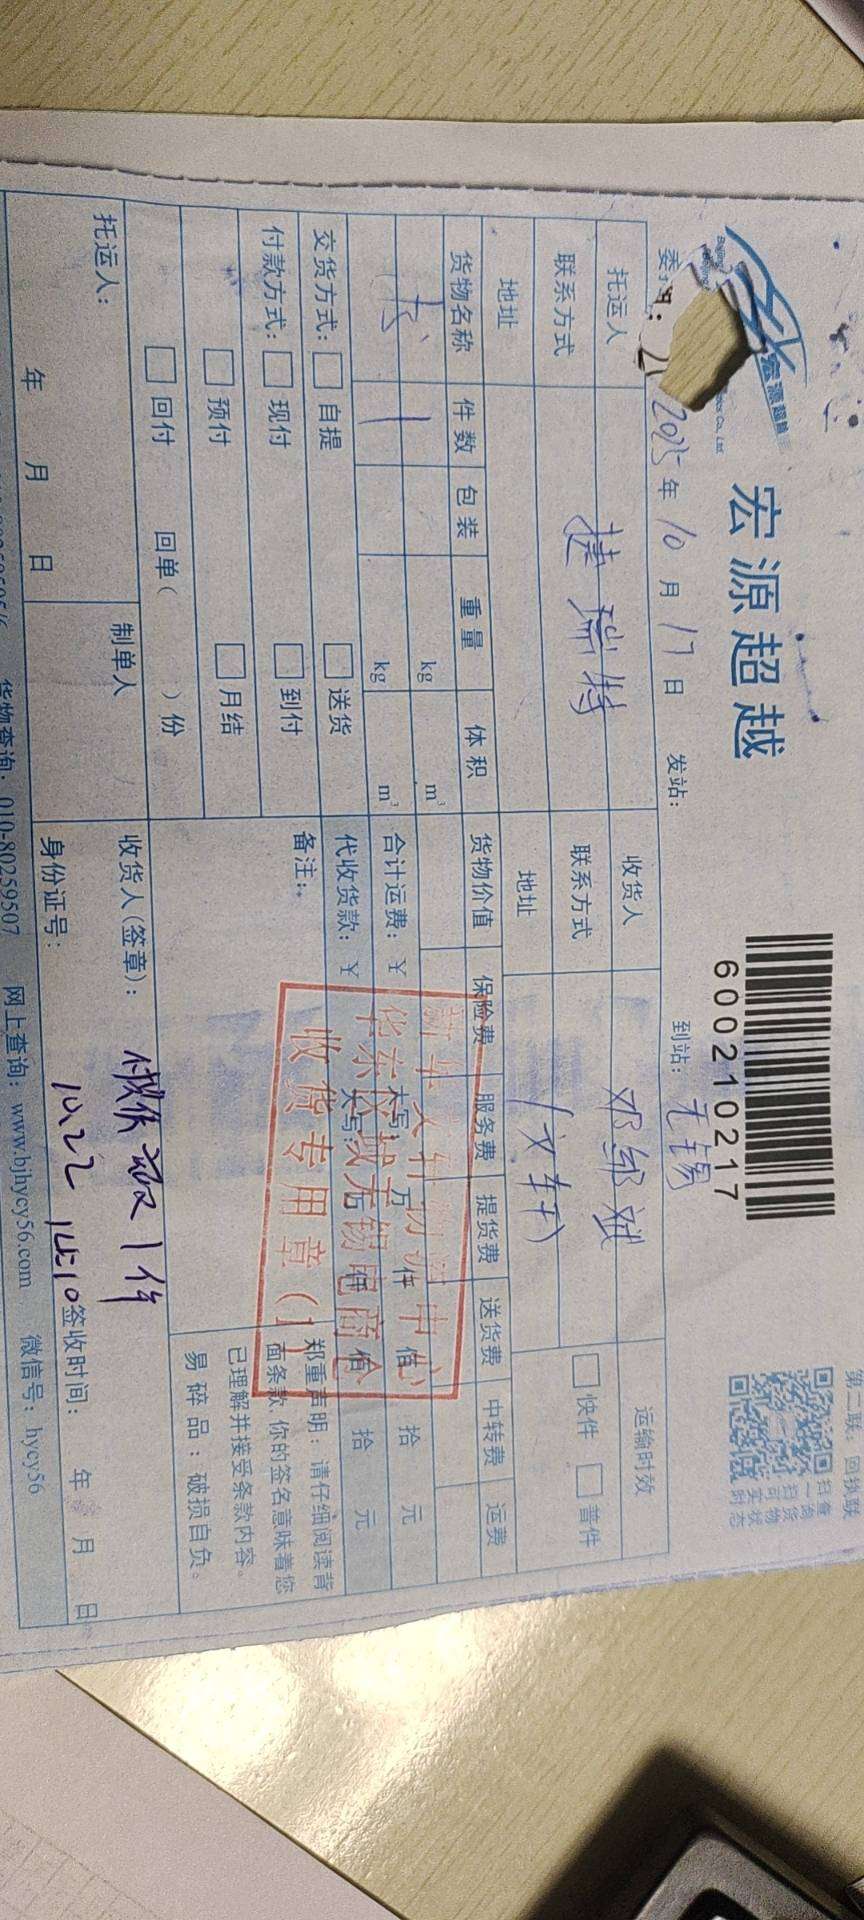 第二联：回执联
宏源超越
宏源超越
600210217
扫一扫可实时
查询货物状态
2025年10月17日 发站： 到站：无锡
托运人 捷瑞特 收货人 邓绍斌 运输时效
联系方式 联系方式 快件 普件
地址 地址 (文轩)
货物名称 件数 包装 重量 体积 货物价值 保险费 服务费 提货费 送货费 中转费 运费
书 1 kg m³
kg m³ 合计运费：¥ 大写： 万 仟 佰 拾 元
交货方式： 自提 送货 代收货款：¥ 大写： 万 仟 佰 拾 元
付款方式： 现付 到付 备注：
预付 月结
回付 回单( )份
郑重声明：请仔细阅读背
面条款，你的签名意味着您
已理解并接受条款内容。
易碎品：破损自负。
新华文轩物流中心
收货专用章(1
托运人： 制单人 收货人(签章)： 收1件
年 月 日 身份证号： 10.22 签收时间： 年 月 日
货物查询：010-80259507 网上查询：www.bjhycy56.com 微信号：hycy56